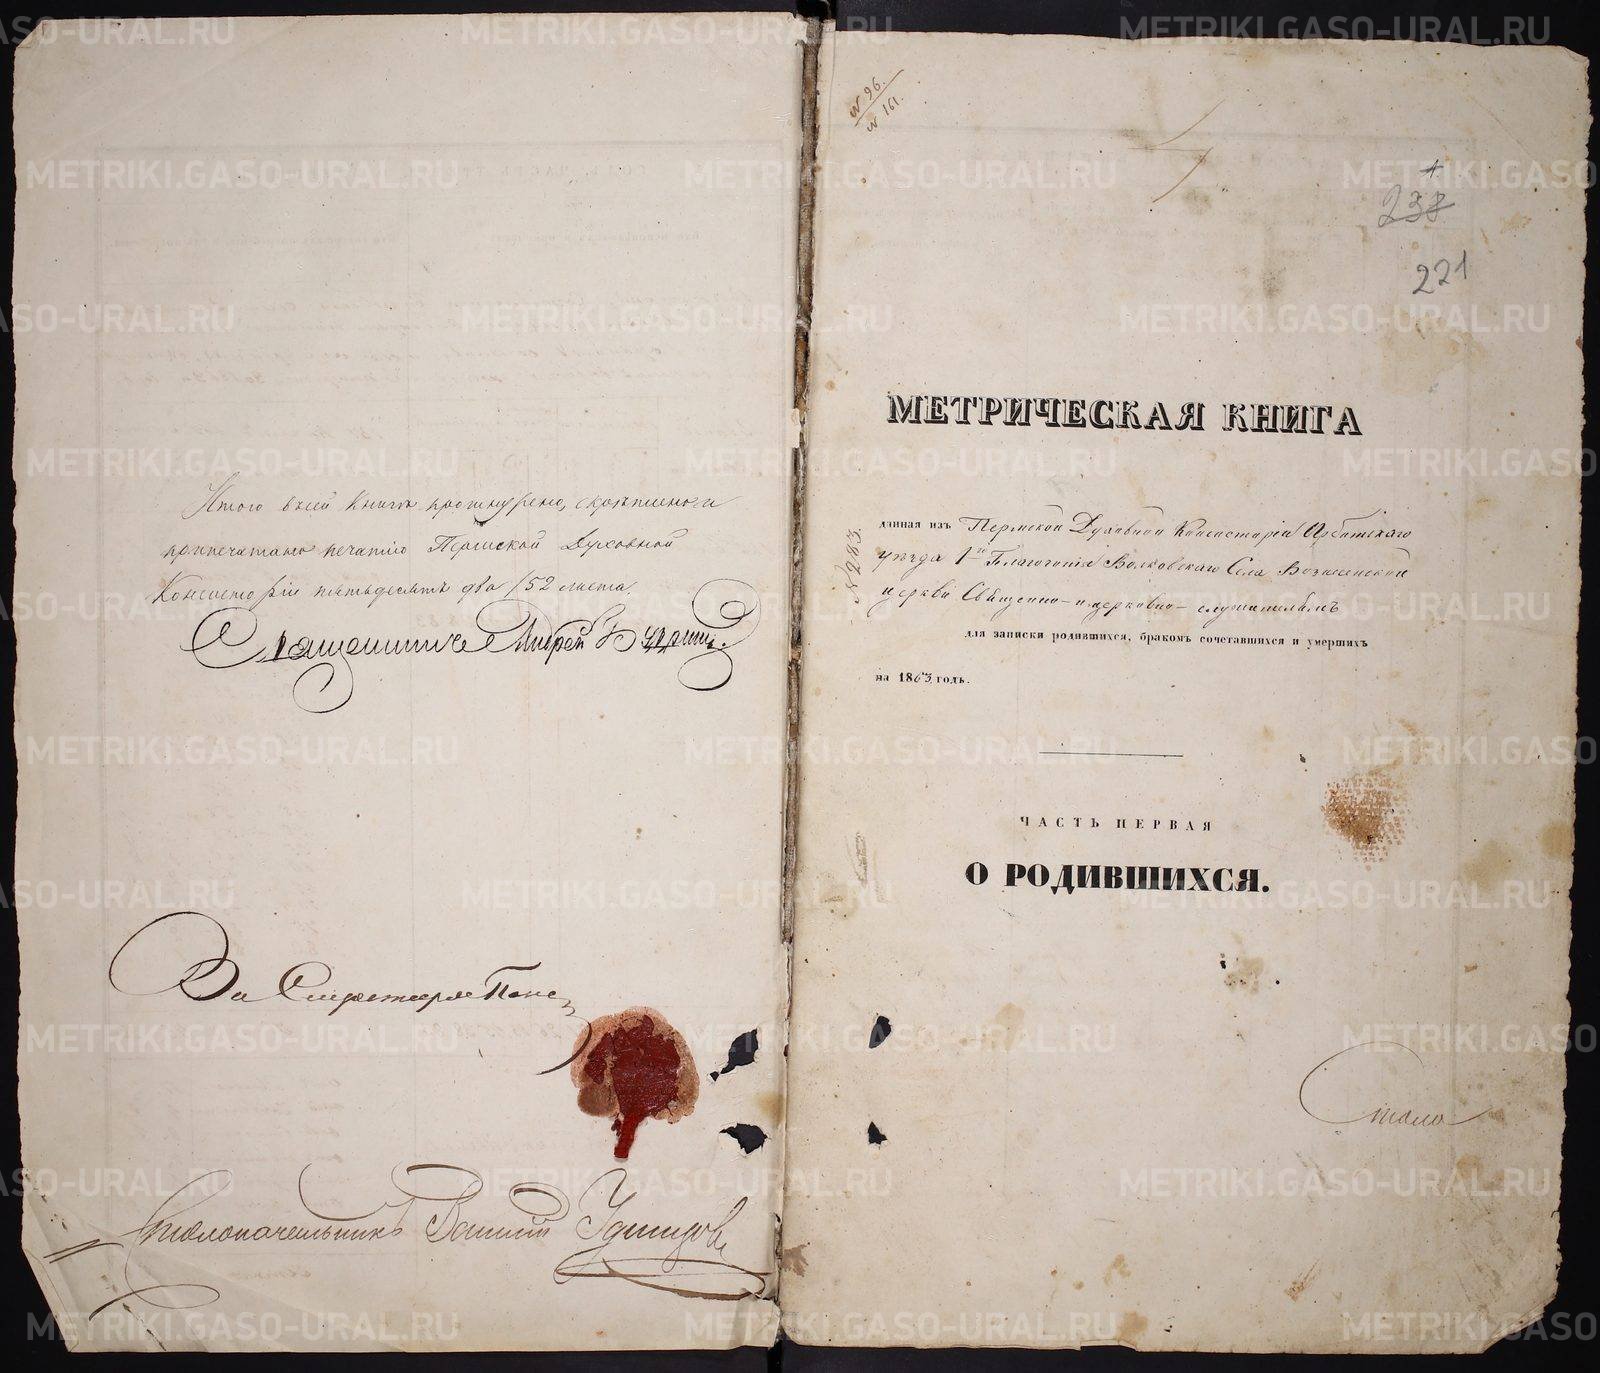 Итого всей книги прошнурено, скрепленно и
припечатано печатью Пермской Духовной
Консисторіи пятьдесятъ два /52 листа.
Священникъ Андрей
За Секретаря
Столоначальникъ
№ 96.
№ 161.
238
221
МЕТРИЧЕСКАЯ КНИГА
№ 283.
данная изъ Пермской Духовной Консисторіи Ирбитскаго
уѣзда 1го Благочинія Волковскаго Села Вознесенской
церкви Священно-и церковно-служителямъ
для записки родившихся, бракомъ сочетавшихся и умершихъ
на 1863 годъ.
ЧАСТЬ ПЕРВАЯ
О РОДИВШИХСЯ.
Стола
METRIKI.GASO-URAL.RU